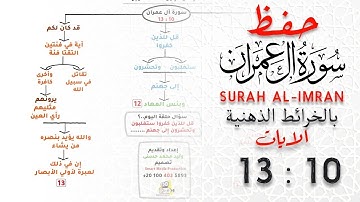 حفظ
سورة آل عمران
SURAH AL-IMRAN
بالخرائط الذهنية
الآيات
13 : 10
سورة آل عمران
13 : 10
قل للذين
كفروا
ستغلبون - وتحشرون
إلى جهنم
وبئس المهاد 12
سؤال حلقة اليوم..؟
قل للذين كفروا ستغلبون
وتحشرون إلى جهنم ......
إعداد وتقديم
تصميم
Smart Minds Production
+20 100 403 5893
قد كان لكم
آية في فئتين
التقتا فئة
تقاتل
في سبيل
الله
وأخرى
كافرة
يرونهم
مثليهم
رأي العين
والله يؤيد بنصره
من يشاء
إن في ذلك
لعبرة لأولي الأبصار
13